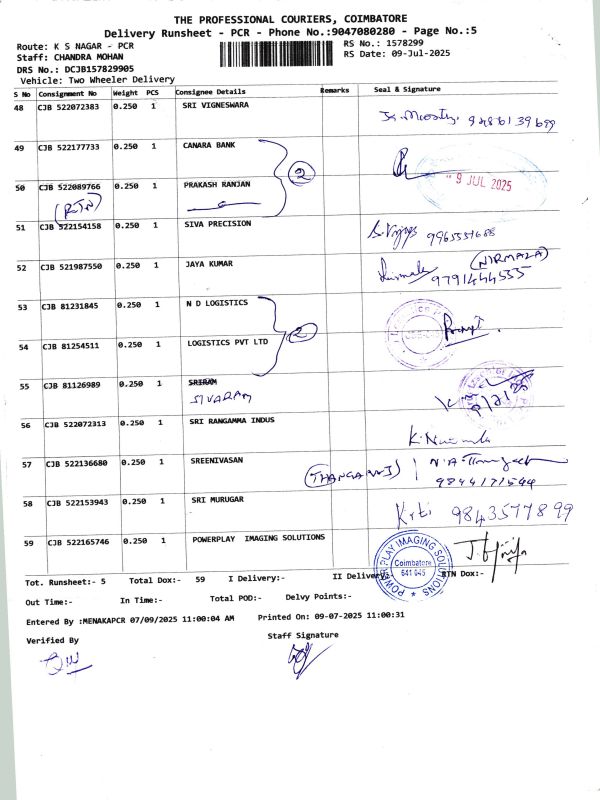 THE PROFESSIONAL COURIERS, COIMBATORE
Delivery Runsheet - PCR - Phone No.:9047080280 - Page No.:5
Route: K S NAGAR - PCR
RS No.: 1578299
Staff: CHANDRA MOHAN
RS Date: 09-Jul-2025
DRS No.: DCJB157829905
Vehicle: Two Wheeler Delivery
S No Consignment No Weight PCS Consignee Details Remarks Seal & Signature
48 CJB 522072383 0.250 1 SRI VIGNESWARA
9486139699
49 CJB 522177733 0.250 1 CANARA BANK
2
9 JUL 2025
50 CJB 522089766 0.250 1 PRAKASH RANJAN
(RTN)
51 CJB 522154158 0.250 1 SIVA PRECISION
52 CJB 521987550 0.250 1 JAYA KUMAR
(NIRMALA)
9791444535
53 CJB 81231845 0.250 1 N D LOGISTICS
2
54 CJB 81254511 0.250 1 LOGISTICS PVT LTD
55 CJB 81126989 0.250 1 SRIRAM
SIVARAM
56 CJB 522072313 0.250 1 SRI RANGAMMA INDUS
57 CJB 522136680 0.250 1 SREENIVASAN
9844171544
58 CJB 522153943 0.250 1 SRI MURUGAR
9843577899
59 CJB 522165746 0.250 1 POWERPLAY IMAGING SOLUTIONS
POWERPLAY IMAGING SOLUTIONS
Coimbatore
641 045
Tot. Runsheet:- 5 Total Dox:- 59 I Delivery:- II Delivery:- RTN Dox:-
Out Time:- In Time:- Total POD:- Delvy Points:-
Entered By :MENAKAPCR 07/09/2025 11:00:04 AM Printed On: 09-07-2025 11:00:31
Verified By Staff Signature